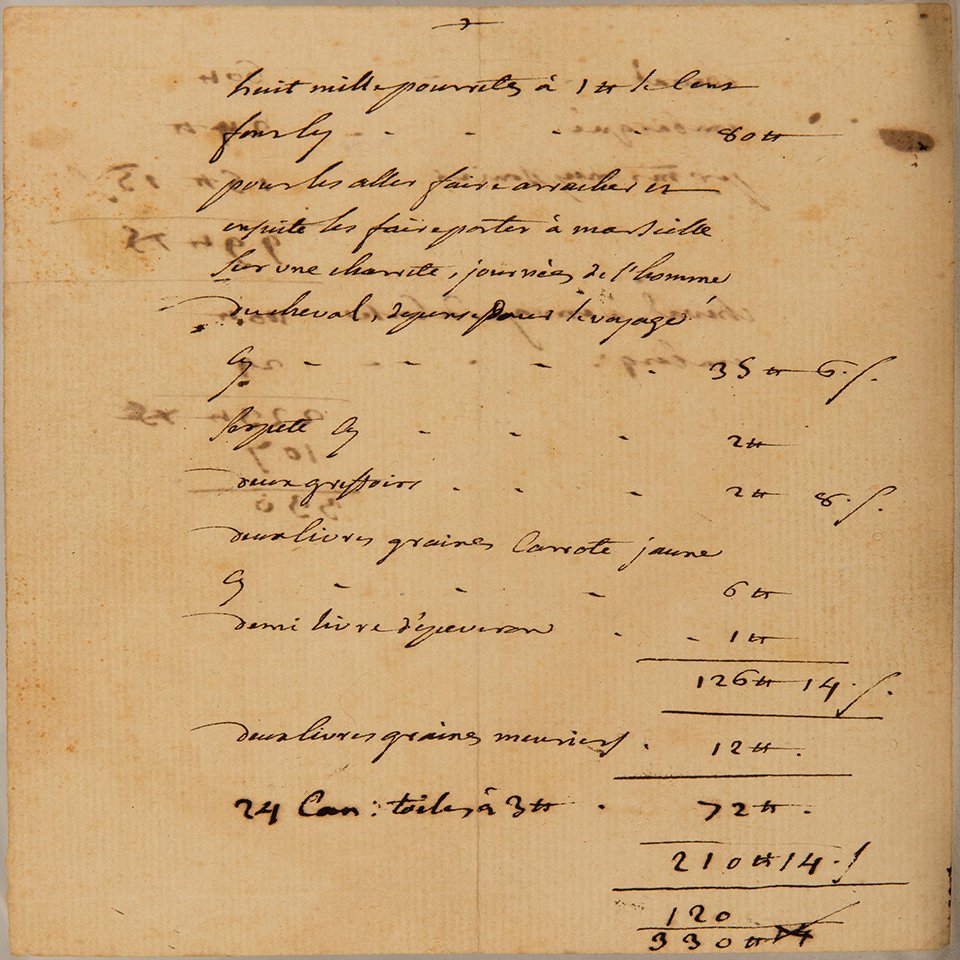 huit mille pourretes à 1 ₶ le cent
fourly - - - - 80 ₶
pour les aller faire arracher et
ensuite les faire porter à marseille
sur une charrete, journées de l'homme
du cheval, depense pour le voyage
Cy - - - - - 35 ₶ 6. s.
serpete Cy - - - 2 ₶
deux greffoirs - - - 2 ₶ 8. s.
deux livres graines Carrote jaune
Cy - - - 6 ₶
demi livre d'epeveron - - 1 ₶
126 ₶ 14. s.
deux livres graines meuriers . 12 ₶.
24 Can: toiles à 3 ₶ . 72 ₶.
210 ₶ 14. s
120
330 ₶